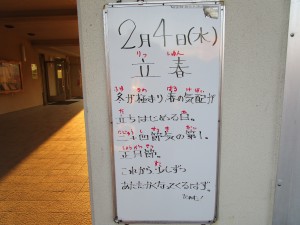 2月4日(水)
りっ しゅん
立 春
ふゆ きわ はる けはい
冬が極まり春の気配が
た
立ちはじめる日。
にじゅうし せっき だい
二十四節気の第1。
しょうがつせつ
正月節。
これから少しずつ
あたたかくなってくるはず。